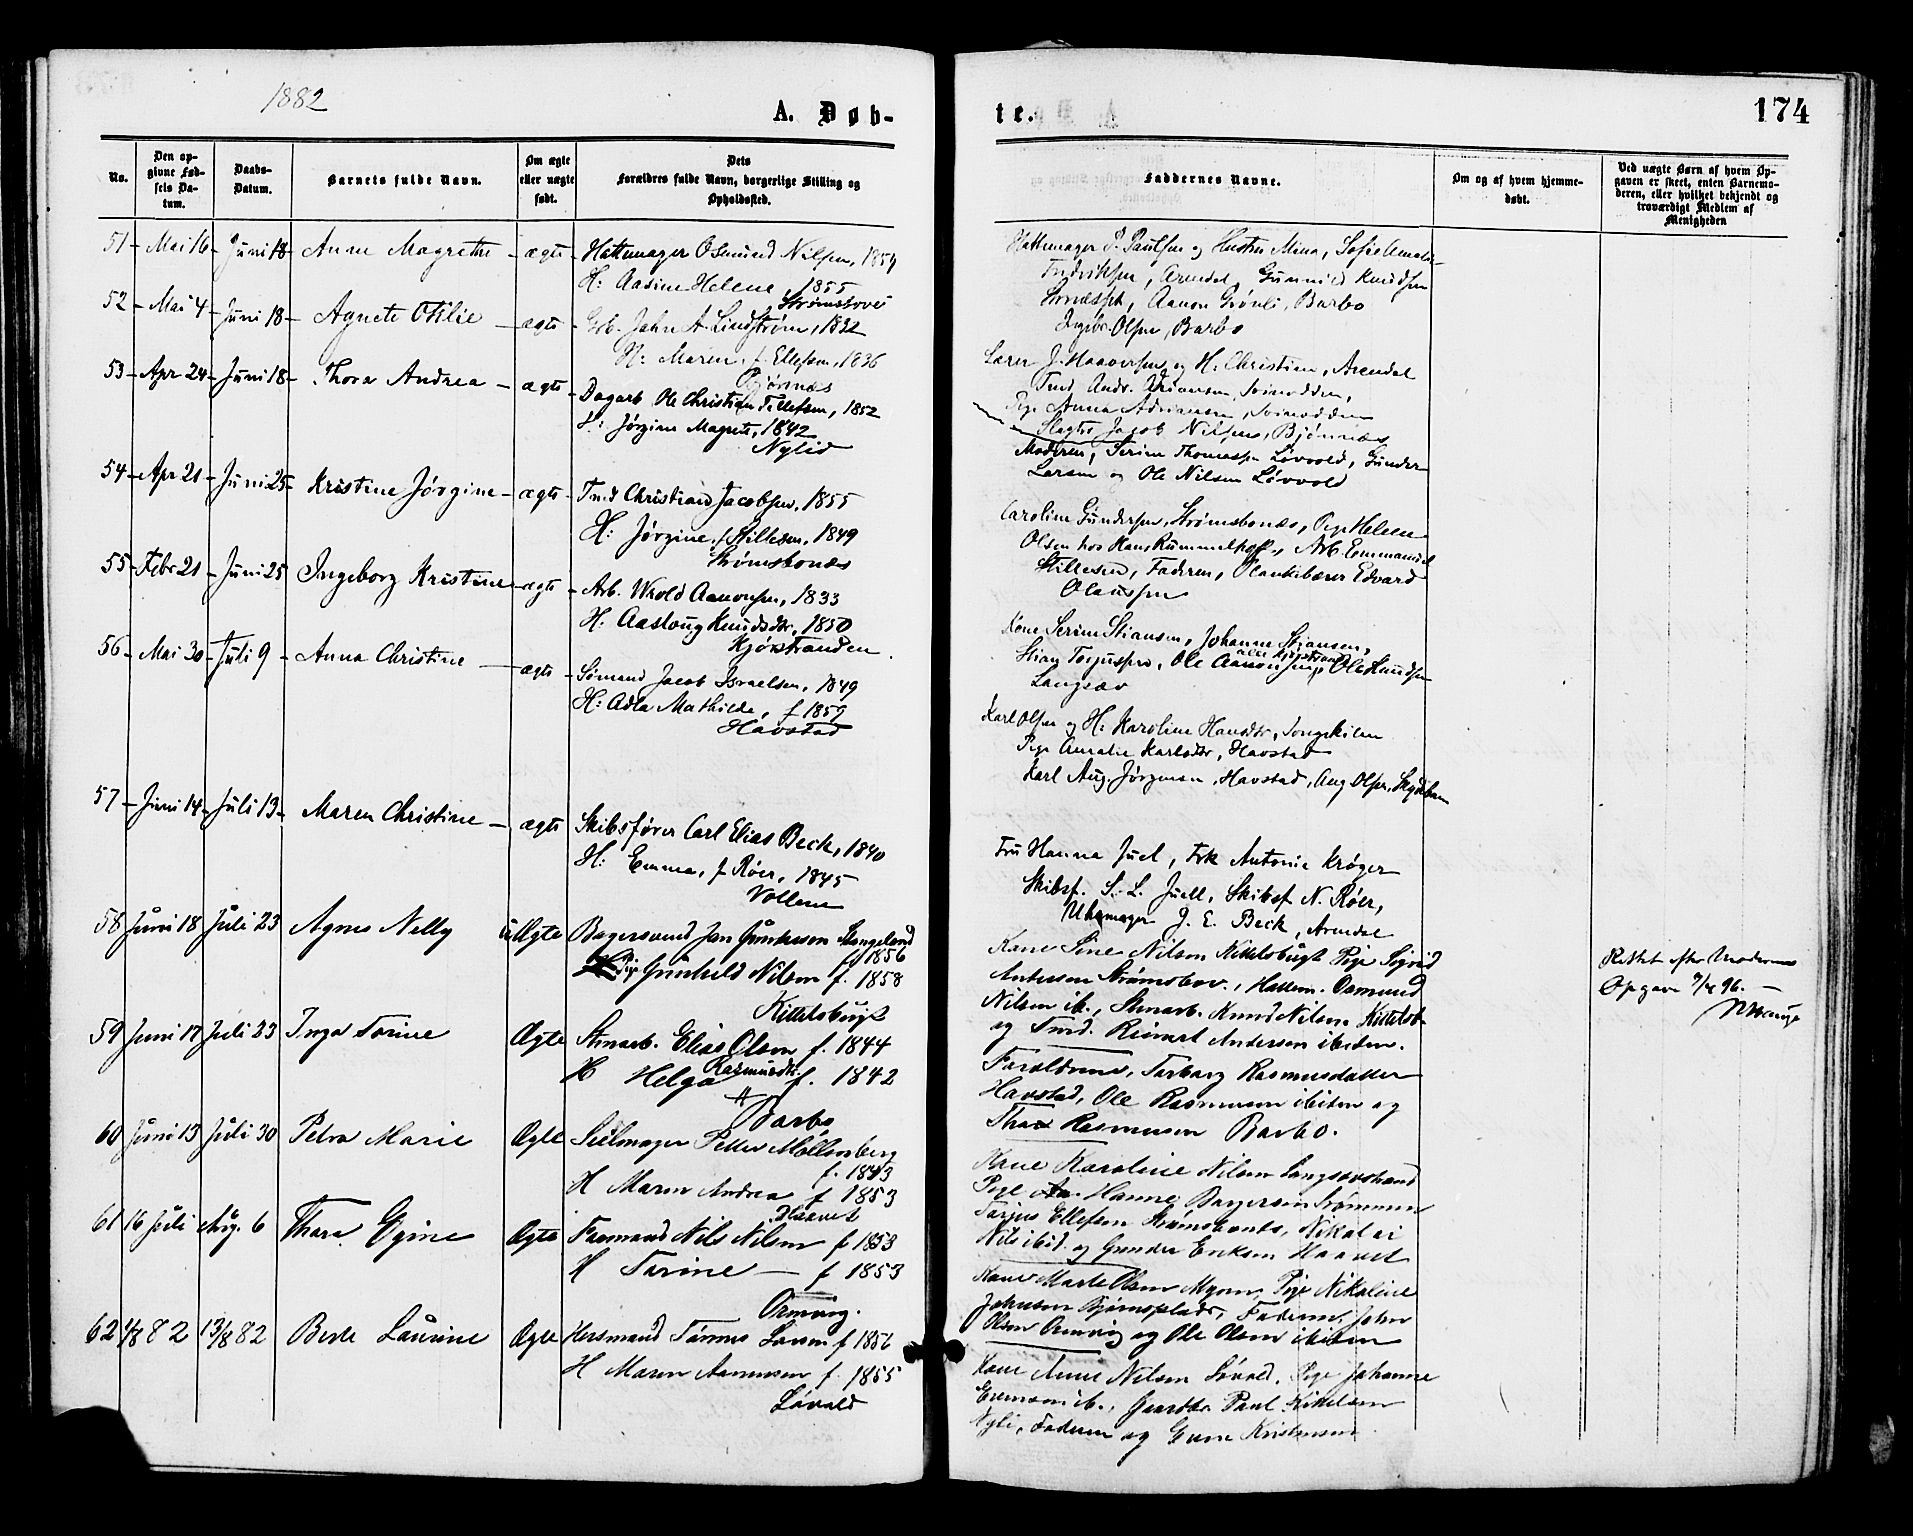 1882
A. Døb-
te.
174
No.
Den op-
givne Fød-
sels Da-
tum.
Daabs-
Datum.
Barnets fulde Navn.
Om ægte
eller uægte
født.
Dets
Forældres fulde Navn, borgerlige Stilling og
Opholdssted.
Faddernes Navne.
Om og af hvem hjemme-
døbt.
Ved uægte Børn af hvem Op-
gaven er skeet, enten Barnemo-
deren, eller hvilket bekjendt og
troværdigt Medlem af
Menigheden
51 - Mai 16 - Juni 18 - Anne Magrethe - ægte - Hattemager Osmund Nilsen, 1854
H: Aasine Helene, 1855
Strømsbovei
Hattemager P. Paulsen og Hustru Mina, Sofie Amalie
Fredriksen, Arendal, Gunnild Knudsen
Aanon Grønli, Barbo
Ingebr. Olsen, Barbo
52 - Mai 4 - Juni 18 - Agnete Otilie - ægte - Grb. John A. Lindstrøm, 1832
H: Maren, f. Ellefsen, 1836
Bjørnnæs
Lærer J. Haaversen og H. Christine, Arendal
Tmd Andr. Adriansen,
Pige Anna Adriansen,
Slagter Jacob Nilsen, Bjønnæs
53 - Apr 24 - Juni 18 - Thora Andrea - ægte - Dagarb Ole Christian Tellefsen, 1852
H: Jørgine Magrete, 1842
Nylid
Moderen, Serine Thomassen Løvvold, Gunder
Larsen og Ole Nilsen Løvvold
54 - Apr 21 - Juni 25 - Kristine Jørgine - ægte - Tmd Christian Jacobsen, 1855
H: Jørgine, f Stillesen, 1849
Strømsbonæs
Caroline Gundersen, Strømsbonæs, Pige Helene
Olsen hos Hans Rummelhoff, Arb. Emmanuel
Stillesen, Faderen, Plankebærer Edvard
Olaussen
55 - Febr 21 - Juni 25 - Ingeborg Kristine - ægte - Arb. Wrold Aanonsen, 1833
H. Aasloug Knudsdtr, 1850
Kjørstranden
Kone Serine Stiansen, Johanne Stiansen,
Stian Terjussen, Ole Aanonsen, Ole Knudsen
Langsæv
56 - Mai 30 - Juli 9 - Anna Christine - ægte - Sømand Jacob Israelsen, 1849
H: Adla Mathilde, f 1859
Havstad
Karl Olsen og H: Karoline Hansdtr, Songekilen
Pige Amalie Karlsdtr, Havstad
Karl Aug. Jørgensen, Havstad, Aug Olsen,
57 - Juni 14 - Juli 13 - Maren Christine - ægte Skibsfører Carl Elias Beck, 1840
H: Emma, f Røer, 1845
Vollene
Fru Hanna Juel, Frk Antonie Krøger
Skibsf. S. L. Juell, Skibsf N. Røer,
Uhrmager J. E. Beck, Arendal
58 Juni 18 Juli 23 Agnes Nelly uÆgte Bagersvend Jan Stangeland
f 1856
Pige Gunhild Nilsen f. 1858
Kittelsbugt
Kone Sine Nilsen Kittelsbugt Pige Sigrid
Andersen Strømsbov., Hattem. Osmund
Nilsen ib., Stenarb. Knud Nilsen Kittelsb-
og Tmd. Reinert Andersen ibidem.
Rettet efter Moderens
Opgave 7/4 96. —
59 Juni 17 Juli 23 Inga Torine Ægte Stenarb. Elias Olsen f. 1844
H Helga Rasmusdtr. f. 1842
Barbo
Forældrene, Torborg Rasmusdatter
Havstad, Ole Rasmussen ibidem og
Thor Rasmussen Barbo.
60 Juni 13 Juli 30 Petra Marie Ægte Seilmager Petter Møllenberg
f. 1843
H Maren Andrea f 1853
Haavet
Kone Karoline Nilsen Langsævstrand
Pige Hanne Borgersen Strømmen
Torjus Ellefsen Strømsbonæs, Nikolai
Nils ibid. og Gunder Eriksen Haavet
61 16 Juli Aug. 6 Thora Gyine Ægte Færmand Nils Nilsen f 1853
H Torine — f 1853
Ormvig.
Kone Marte Olsen Myren, Pige Nikoline
Johnsen Bjørnsplads, Faderen, John
Olsen Ormvig og Ole Olsen ibidem
62 1/8 82 13/8 82 Berte Laurine Ægte Hersmand Tønnes Larsen f 1856
H Maren Aanensen f. 1855
Løvold
Kone Anne Nilsen Løvold, Pige Johanne
Evensen ib., Gaardbr. Paul Kittelsen
Nyli, Faderen og Gunn Kristensen